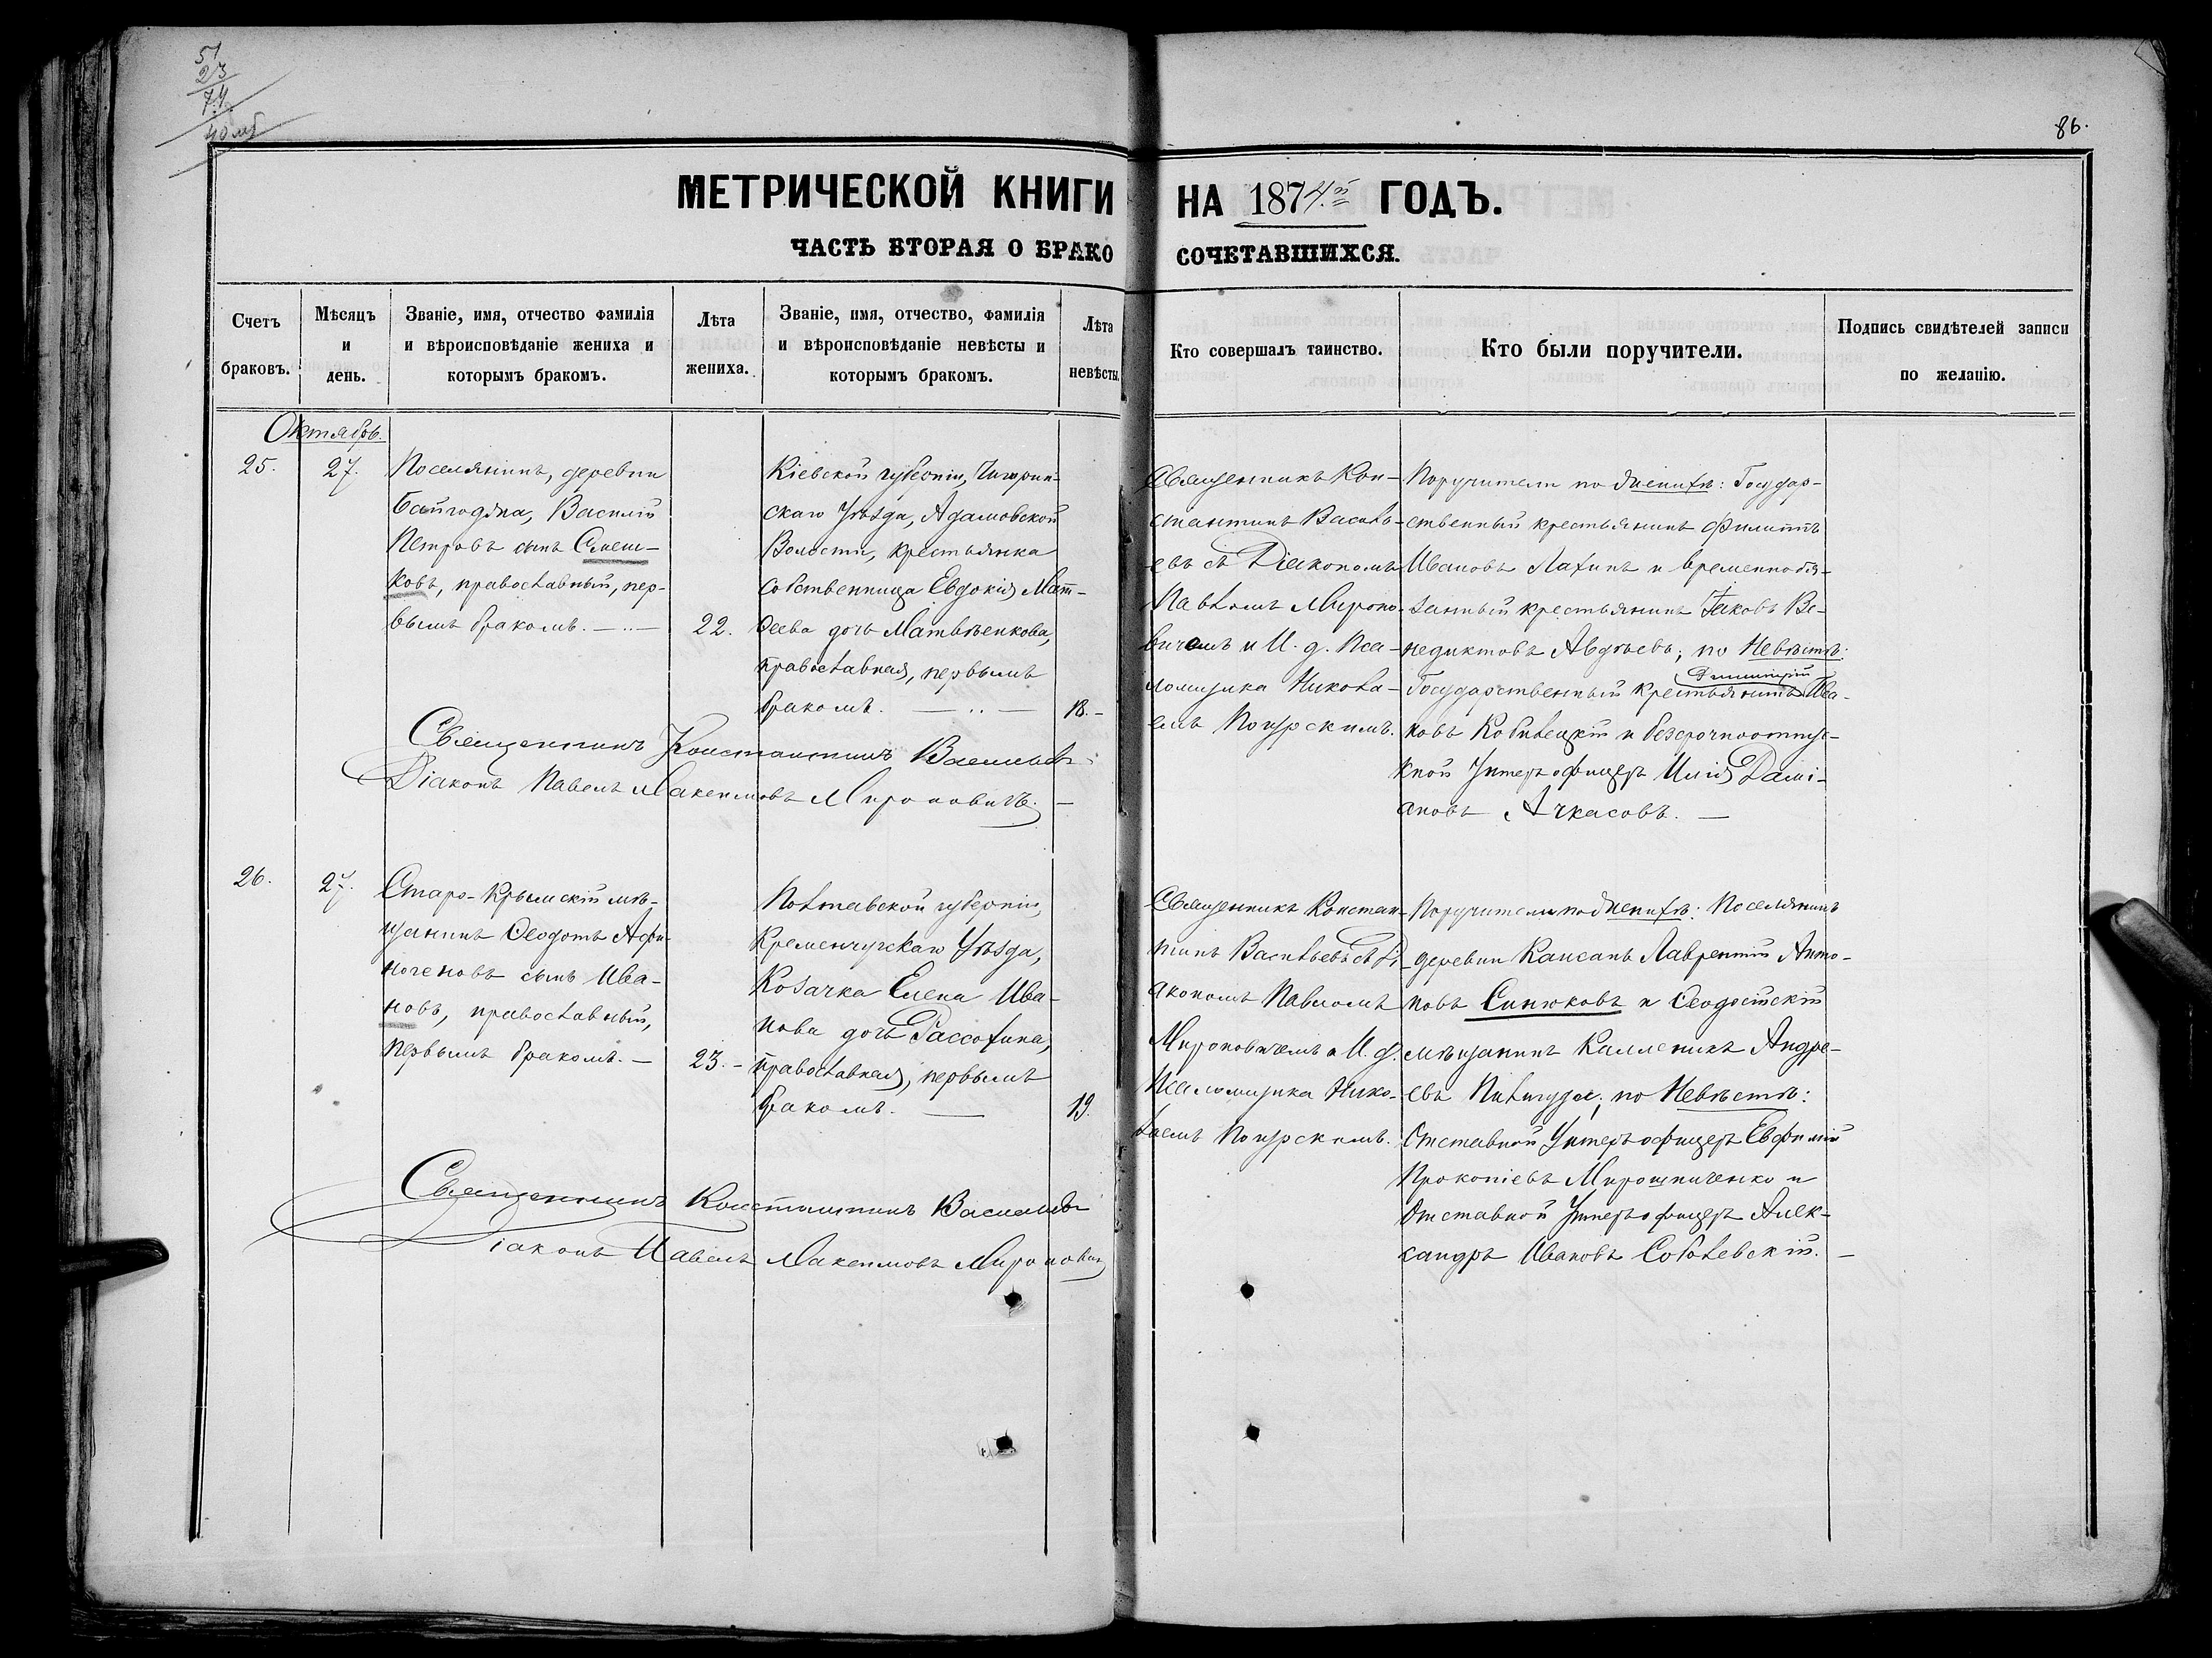 51
23
74
86.
МЕТРИЧЕСКОЙ КНИГИ НА 1874й ГОДЪ.
ЧАСТЬ ВТОРАЯ О БРАКОСОЧЕТАВШИХСЯ.
Счетъ браковъ.
Мѣсяцъ и день.
Званіе, имя, отчество фамилія
и вѣроисповѣданіе жениха и
которымъ бракомъ.
Лѣта жениха.
Званіе, имя, отчество, фамилія
и вѣроисповѣданіе невѣсты и
которымъ бракомъ.
Лѣта невѣсты.
Кто совершалъ таинство.
Кто были поручители.
Подпись свидѣтелей записи
по желанію.
Октябрь.
25.
27.
Поселянинъ, деревни
Байгоджа, Василій
Петровъ сынъ Снеш-
ковъ, православный, пер-
вымъ бракомъ.
22.
Кіевской губерніи, Чигирин-
скаго Уѣзда, Адамовской
Волости, крестьянка
собственница Евдокія Мат-
ѳеева дочь Матвѣенкова,
православная, первымъ
бракомъ.
18.
Священникъ Кон-
стантинъ Василь-
евъ съ Діякономъ
Павломъ Мироно-
вичемъ и И. д. Пса-
ломщика Никола-
емъ Поярскимъ.
Поручители по женихѣ: Государ-
ственный крестьянинъ Филиппъ
Ивановъ Лахинъ и временнобя-
занный крестьянинъ Іаковъ Ве-
недиктовъ Авдѣевъ; по Невѣстѣ:
Димитрій
Государственный крестьянинъ Ива-
новъ Кобилецкій и безсрочноотпус-
кной Унтеръ офицеръ Илія Дамі-
ановъ Ачкасовъ.
Священникъ Константинъ Васильевъ
Діаконъ Павелъ Максимовъ Мироновичъ.
26.
27.
Старо-Крымскій мѣ-
щанинъ Ѳеодотъ Афи-
ногеновъ сынъ Ива-
новъ, православный,
первымъ бракомъ.
23.
Полтавской губерніи,
Кременчугскаго Уѣзда,
Козачка Елена Ива-
нова дочь Рассохина,
православная, первымъ
бракомъ.
19.
Священникъ Констан-
тинъ Васильевъ съ Ді-
якономъ Павломъ
Мироновичемъ и И. д.
Псаломщика Нико-
лаемъ Поярскимъ.
Поручители по женихѣ: Поселянинъ
деревни Кансанъ Лаврентій Анто-
новъ Синюковъ и Ѳеодосійскій
мѣщанинъ Каленикъ Андре-
евъ Пивигуда; по Невѣстѣ:
Отставной Унтеръ офицеръ Евфимій
Прокопіевъ Мирошниченко и
Отставной Унтеръ офицеръ Алек-
сандръ Ивановъ Соболевскій.
Священникъ Константинъ Васильевъ
Діаконъ Павелъ Максимовъ Мироновичъ